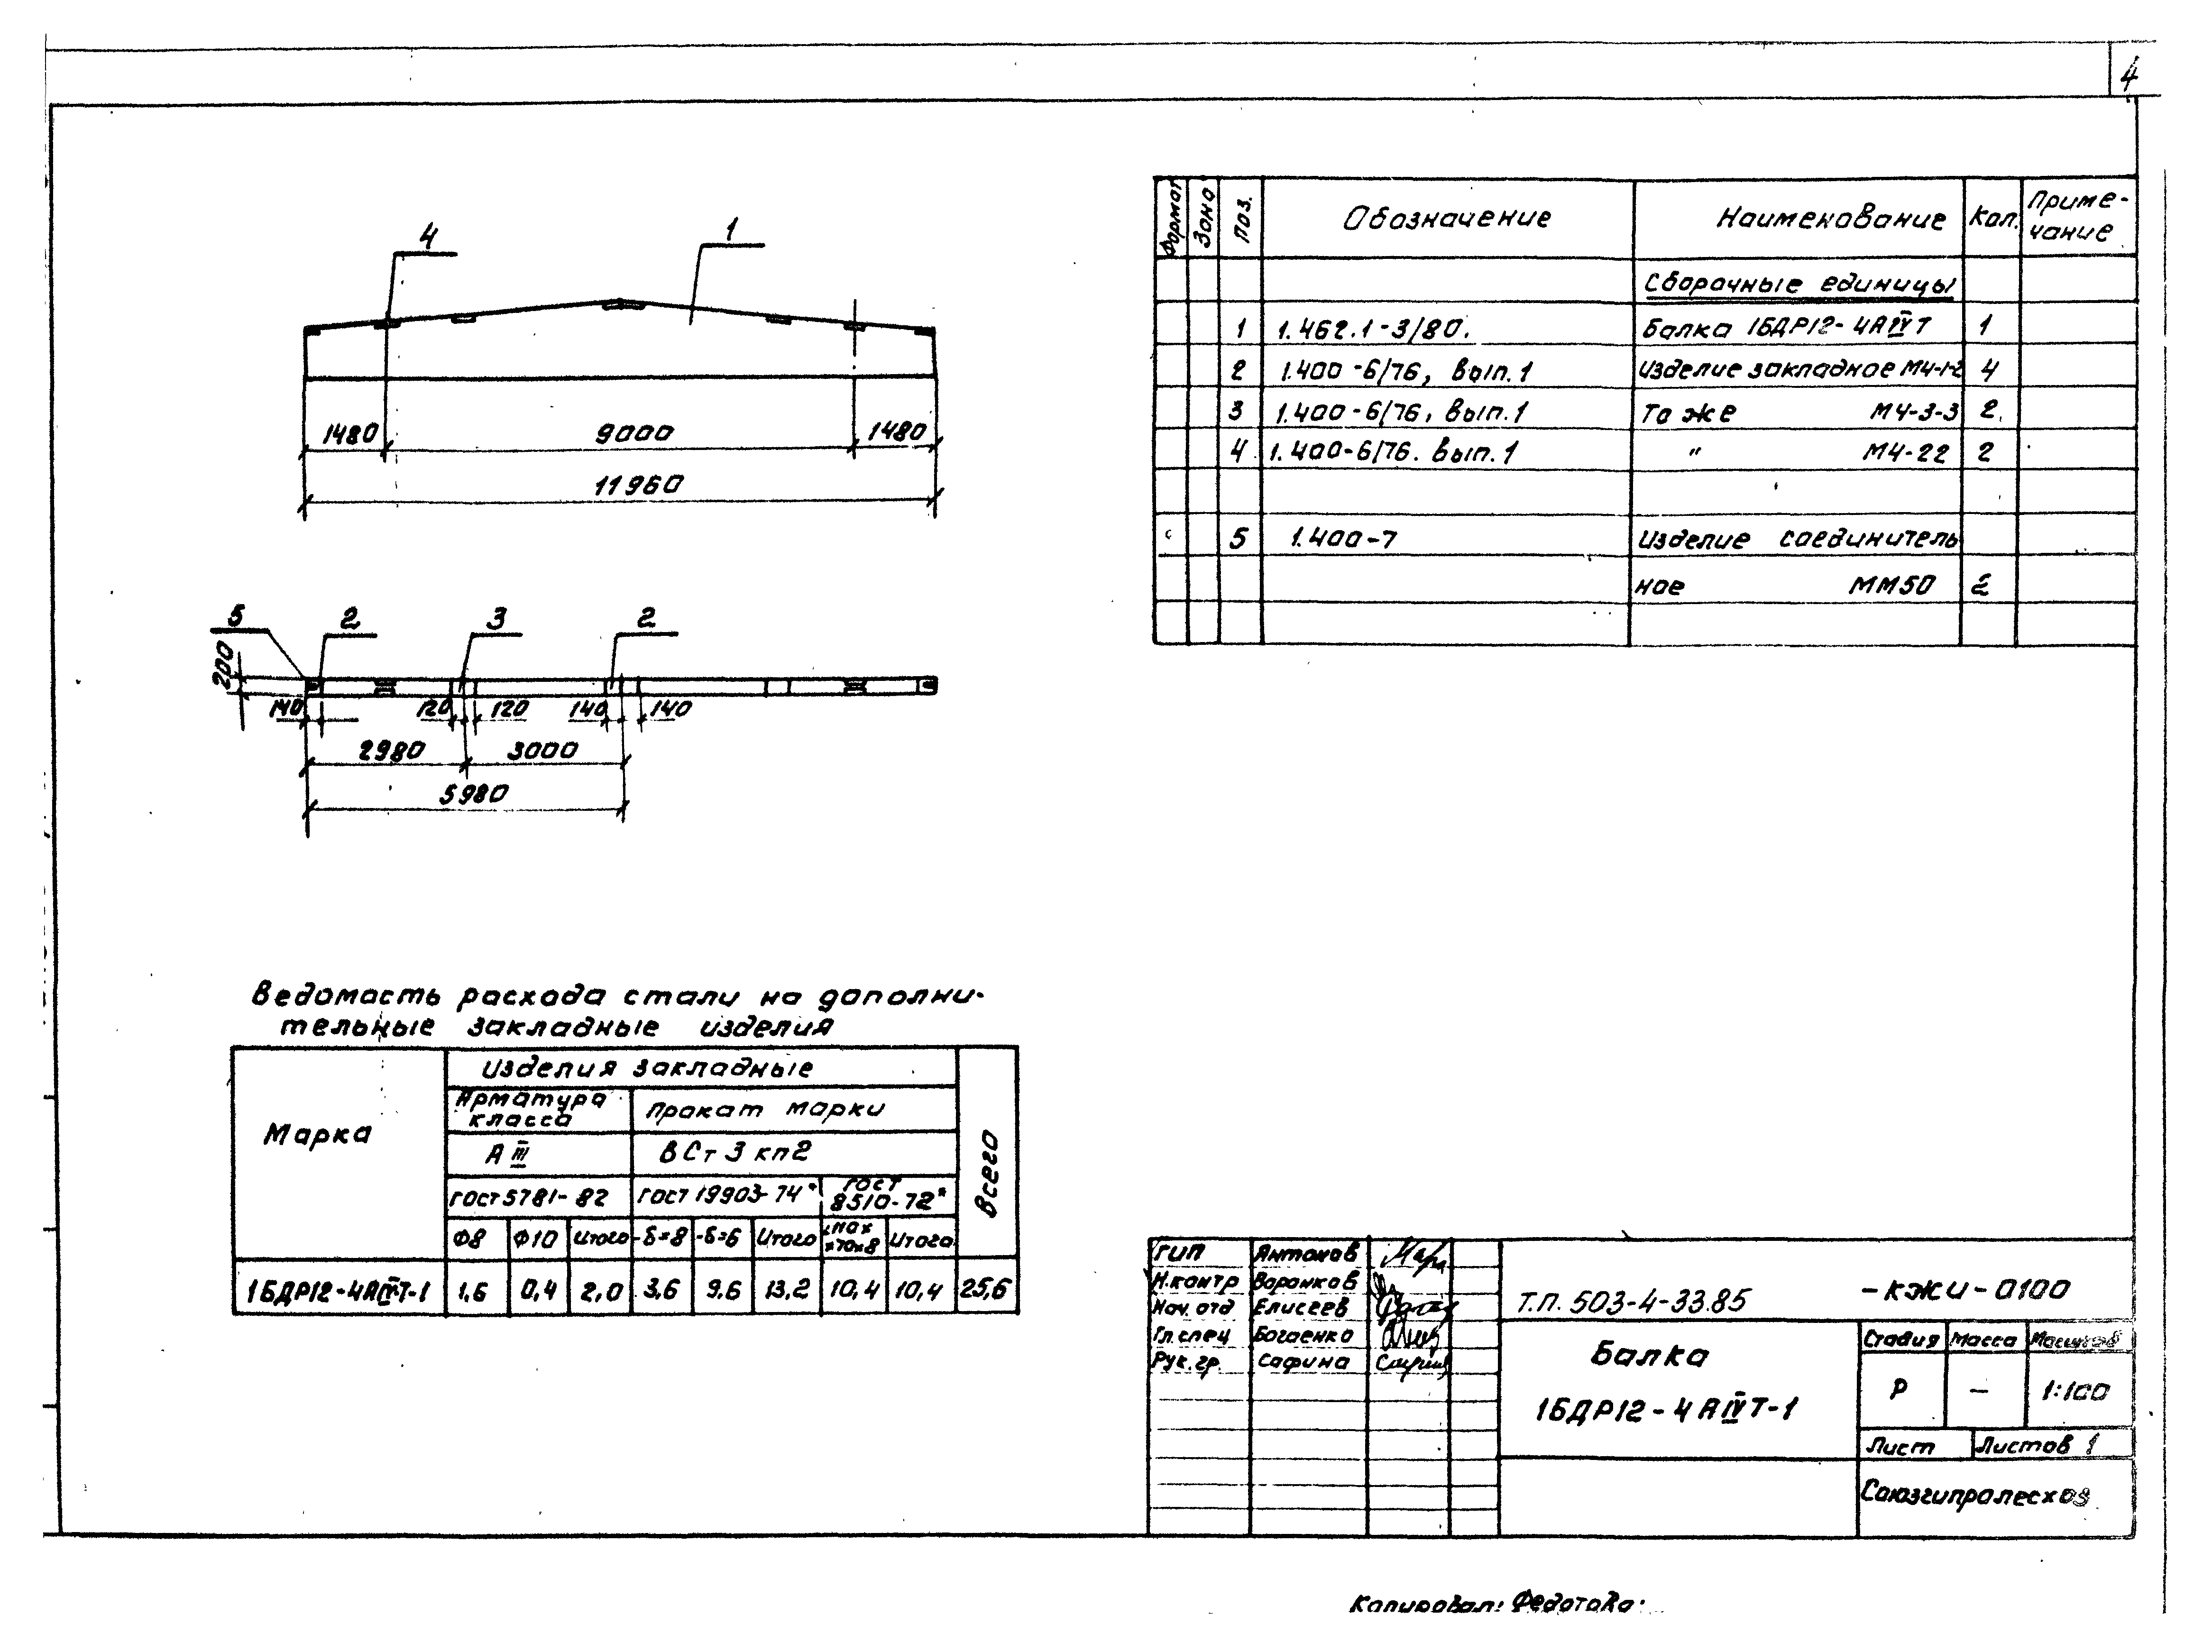 4
4 1
1480 9000 1480
11960
5 2 3 2
200
140 120 120 140 140
2980 3000
5980
Формат Зона Поз. Обозначение Наименование Кол. Приме-
чание
Сборочные единицы
1 1.462.1-3/80. Балка 1БДР12-4АIVТ 1
2 1.400-6/76, вып.1 Изделие закладное М4-1-2 4
3 1.400-6/76, вып.1 То же М4-3-3 2
4 1.400-6/76. вып.1 " М4-22 2
5 1.400-7 Изделие соединитель
ное ММ50 2
Ведомость расхода стали на дополни-
тельные закладные изделия
Марка Изделия закладные Всего
Арматура
класса
Прокат марки
АIII ВСт3кп2
ГОСТ5781-82 ГОСТ19903-74* ГОСТ
8510-72*
Ф8 Ф10 Итого -δ=8 -δ=6 Итого
×70×8 Итого
1БДР12-4АIVТ-1 1,6 0,4 2,0 3,6 9,6 13,2 10,4 10,4 25,6
ГИП Антонов
Н.контр Воронков
Нач.отд Елисеев
Гл.спец Богаенко
Рук.гр. Сафина
Т.П. 503-4-33.85 -КЖИ-0100
Балка
1БДР12-4АIVТ-1
Стадия Масса Масштаб
Р — 1:100
Лист Листов 1
Союзгипролесхоз
Копировал: Федотова